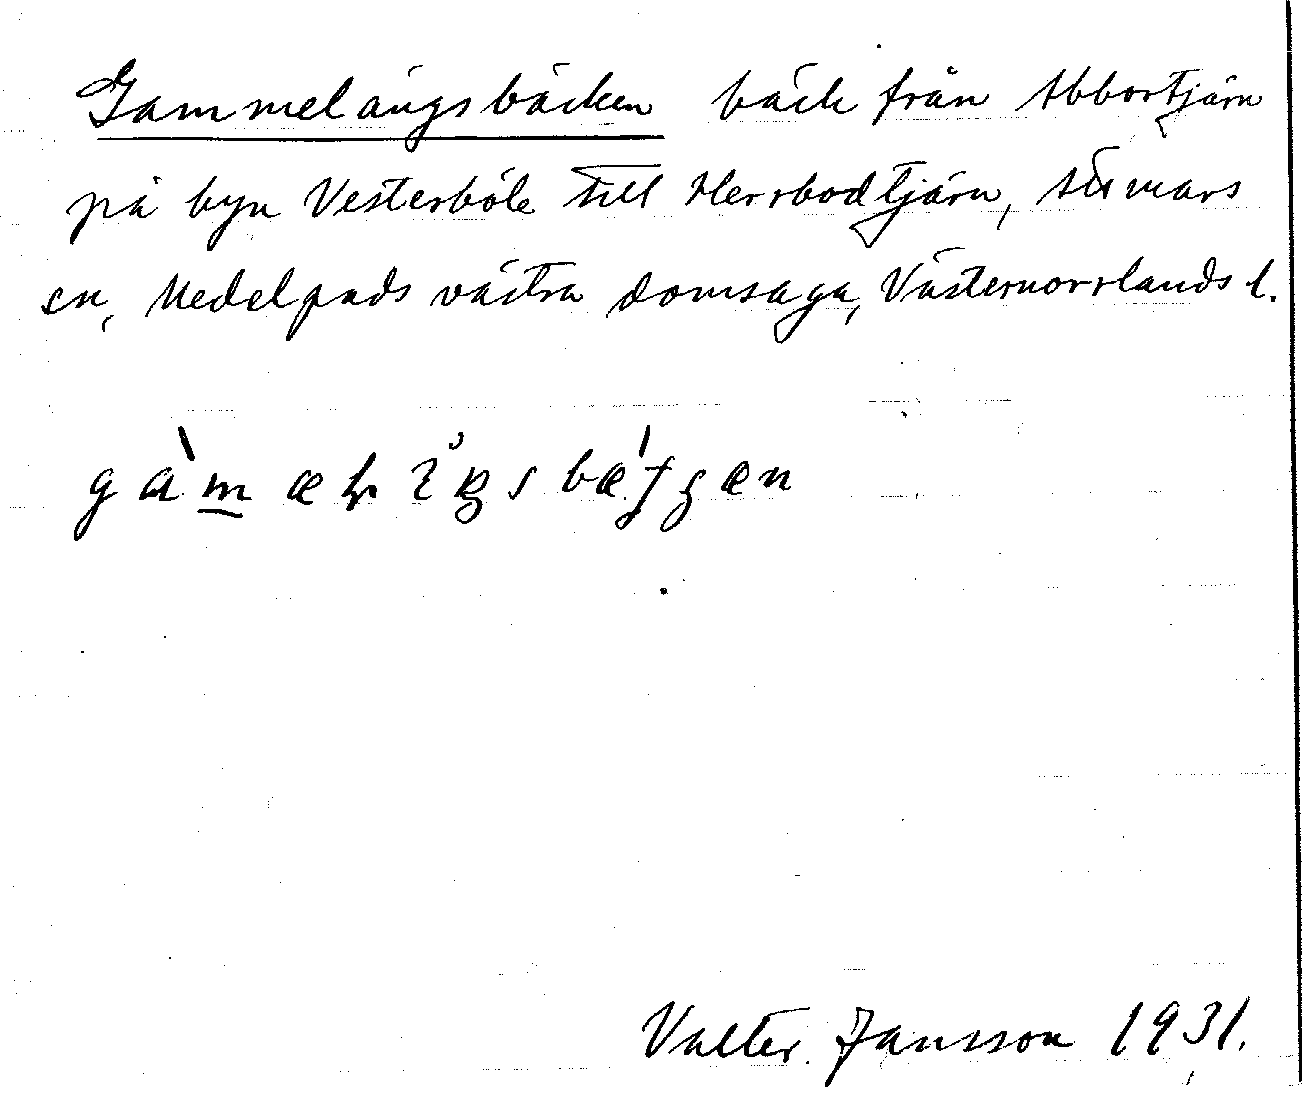 Gammelängsbäcken bäck från Abbortjärn
på byn Vesterböle till Herrbodtjärn, Attmars
sn, Medelpads västra domsaga, Västernorrlands l.
Valter Jansson 1931.